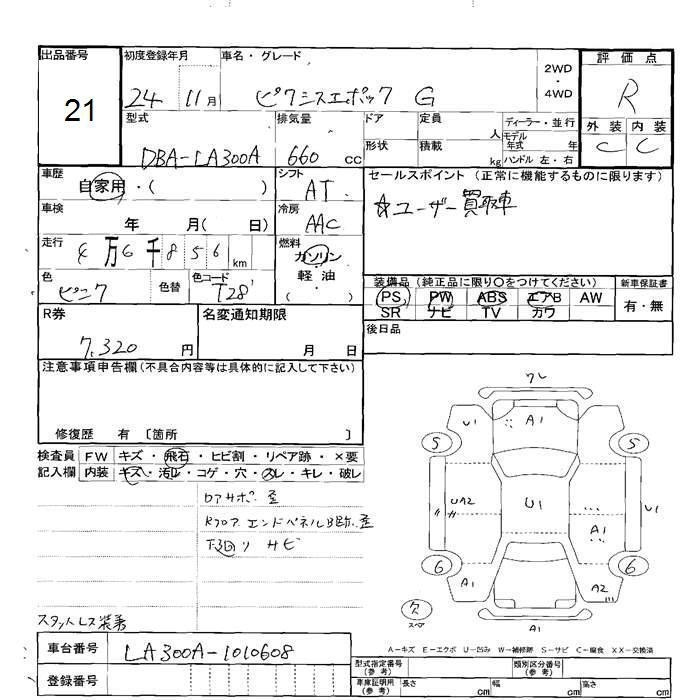 出品番号 21
初度登録年月 24 11月
車名・グレード ピクシスエポック G
2WD・4WD
評価点 R
外装 C 内装 C
型式 DBA-LA300A
排気量 660 cc
ドア 定員 人
ディーラー・並行
モデル年式 年
形状 積載 kg
ハンドル 左・右
車歴 自家用・( )
シフト AT
セールスポイント (正常に機能するものに限ります)
☆ユーザー買取車
車検 年 月( 日)
冷房 AAC
走行 4万6千856km
燃料 ガソリン 軽油 ( )
色 ピンク 色替 色コード T28
装備品 (純正品に限り○をつけてください)
PS PW ABS エアB AW
SR ナビ TV カワ
新車保証書 有・無
R券 7,320 円
名変通知期限 月 日
後日品
注意事項申告欄(不具合内容等は具体的に記入して下さい)
修復歴 有 〔箇所 〕
検査員記入欄
FW キズ・飛石・ヒビ割・リペア跡・×要
内装 キズ・汚レ・コゲ・穴・スレ・キレ・破レ
ロアサポ 歪
Rフロア エンドパネル 歪
下回り サビ
スタットレス装着
ワレ
U1 A1
5 5
UA2 U1 A1 U1
6 6
A1 A2
欠 スペア
A1
A-キズ E-エクボ U-凹み W-補修跡 S-サビ C-腐食 XX-交換済
車台番号 LA300A-1010608
登録番号
型式指定番号(参考) 類別区分番号(参考)
車庫証明用(参考) 長さ cm 幅 cm 高さ cm